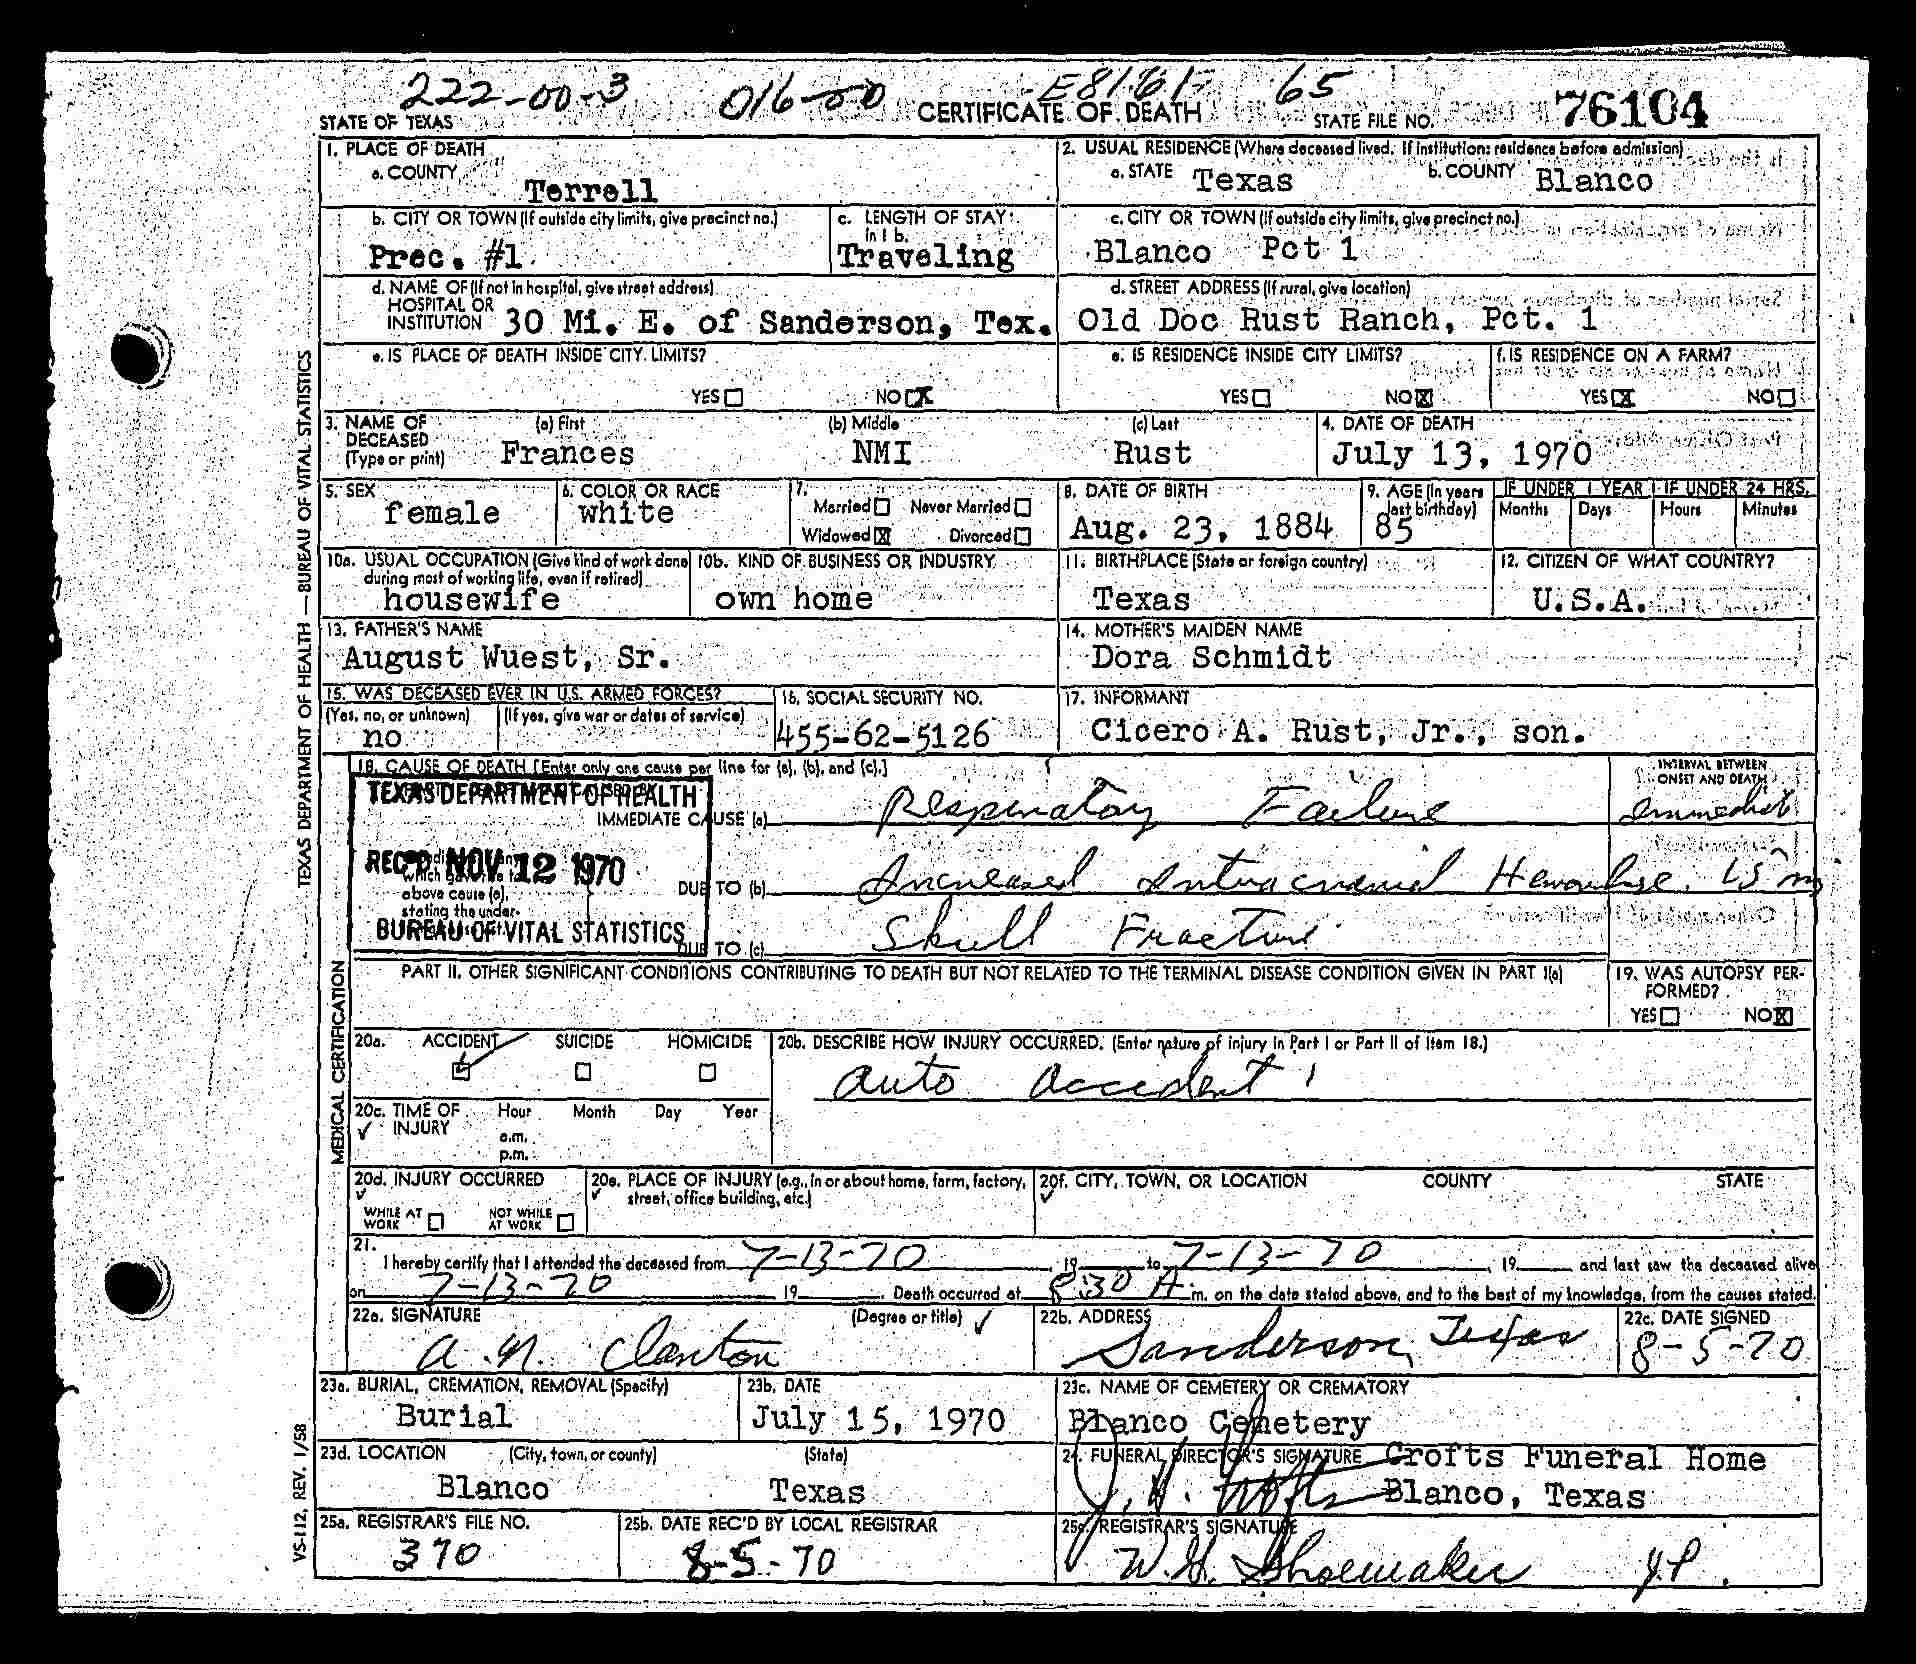 222-00-3 016-00 65
STATE OF TEXAS CERTIFICATE OF DEATH STATE FILE NO. 76104
1. PLACE OF DEATH
a. COUNTY
Terrell
2. USUAL RESIDENCE (Where deceased lived. If institution: residence before admission)
a. STATE Texas b. COUNTY Blanco
b. CITY OR TOWN (If outside city limits, give precinct no.)
Prec. #1
c. LENGTH OF STAY
in 1 b.
Traveling
c. CITY OR TOWN (If outside city limits, give precinct no.)
Blanco Pct 1
d. NAME OF (If not in hospital, give street address)
HOSPITAL OR
INSTITUTION 30 Mi. E. of Sanderson, Tex.
d. STREET ADDRESS (If rural, give location)
Old Doc Rust Ranch, Pct. 1
e. IS PLACE OF DEATH INSIDE CITY LIMITS?
YES NO X
e. IS RESIDENCE INSIDE CITY LIMITS?
YES NO X
f. IS RESIDENCE ON A FARM?
YES X NO
3. NAME OF
DECEASED
(Type or print)
(a) First (b) Middle (c) Last
Frances NMI Rust
4. DATE OF DEATH
July 13, 1970
5. SEX
female
6. COLOR OR RACE
white
7.
Married Never Married
Widowed X Divorced
8. DATE OF BIRTH
Aug. 23, 1884
9. AGE (In years
last birthday)
85
IF UNDER 1 YEAR IF UNDER 24 HRS.
Months Days Hours Minutes
10a. USUAL OCCUPATION (Give kind of work done
during most of working life, even if retired)
housewife
10b. KIND OF BUSINESS OR INDUSTRY
own home
11. BIRTHPLACE (State or foreign country)
Texas
12. CITIZEN OF WHAT COUNTRY?
U.S.A.
13. FATHER'S NAME
August Wuest, Sr.
14. MOTHER'S MAIDEN NAME
Dora Schmidt
15. WAS DECEASED EVER IN U.S. ARMED FORCES?
(Yes, no, or unknown) (If yes, give war or dates of service)
no
16. SOCIAL SECURITY NO.
455-62-5126
17. INFORMANT
Cicero A. Rust, Jr., son.
18. CAUSE OF DEATH [Enter only one cause per line for (a), (b), and (c).]
INTERVAL BETWEEN
ONSET AND DEATH
TEXAS DEPARTMENT OF HEALTH
IMMEDIATE CAUSE (a) Respiratory Failure
REC'D NOV 12 1970
which gave rise to
above cause (a),
stating the under-
DUE TO (b) Increased Intracranial
BUREAU OF VITAL STATISTICS
DUE TO (c) Skull Fracture
PART II. OTHER SIGNIFICANT CONDITIONS CONTRIBUTING TO DEATH BUT NOT RELATED TO THE TERMINAL DISEASE CONDITION GIVEN IN PART I(a)
19. WAS AUTOPSY PER-
FORMED?
YES NO X
20a. ACCIDENT SUICIDE HOMICIDE
20b. DESCRIBE HOW INJURY OCCURRED. (Enter nature of injury in Part I or Part II of Item 18.)
auto accident
20c. TIME OF
INJURY
Hour Month Day Year
a.m.
p.m.
20d. INJURY OCCURRED
WHILE AT
WORK
NOT WHILE
AT WORK
20e. PLACE OF INJURY (e.g., in or about home, farm, factory,
street, office building, etc.)
20f. CITY, TOWN, OR LOCATION COUNTY STATE
21.
I hereby certify that I attended the deceased from 7-13-70, 19 to 7-13-70, 19 and last saw the deceased alive
on 7-13-70 19 . Death occurred at 8:30 A. m. on the date stated above, and to the best of my knowledge, from the causes stated.
22a. SIGNATURE (Degree or title)
A. N. Clanton
22b. ADDRESS
Sanderson, Texas
22c. DATE SIGNED
8-5-70
23a. BURIAL, CREMATION, REMOVAL (Specify)
Burial
23b. DATE
July 15, 1970
23c. NAME OF CEMETERY OR CREMATORY
Blanco Cemetery
23d. LOCATION (City, town, or county) (State)
Blanco Texas
24. FUNERAL DIRECTOR'S SIGNATURE Crofts Funeral Home
J. H. Crofts Blanco, Texas
25a. REGISTRAR'S FILE NO.
370
25b. DATE REC'D BY LOCAL REGISTRAR
8-5-70
25c. REGISTRAR'S SIGNATURE
W. H. Shoemaker J.P.
TEXAS DEPARTMENT OF HEALTH — BUREAU OF VITAL STATISTICS
MEDICAL CERTIFICATION
VS-112, REV. 1/58